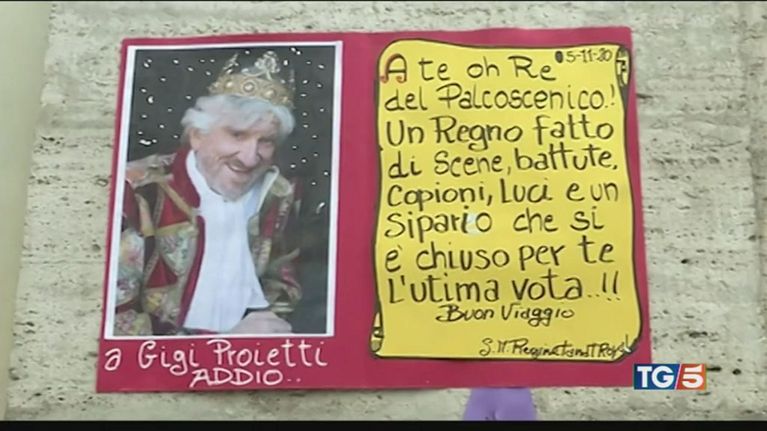 a Gigi Proietti
ADDIO..
5-11-20
A te oh Re
del Palcoscenico.!
Un Regno fatto
di Scene, battute,
Copioni, Luci e un
Sipario che si
è chiuso per te
l'utima vota...!!
Buon Viaggio
S.M.
TG5